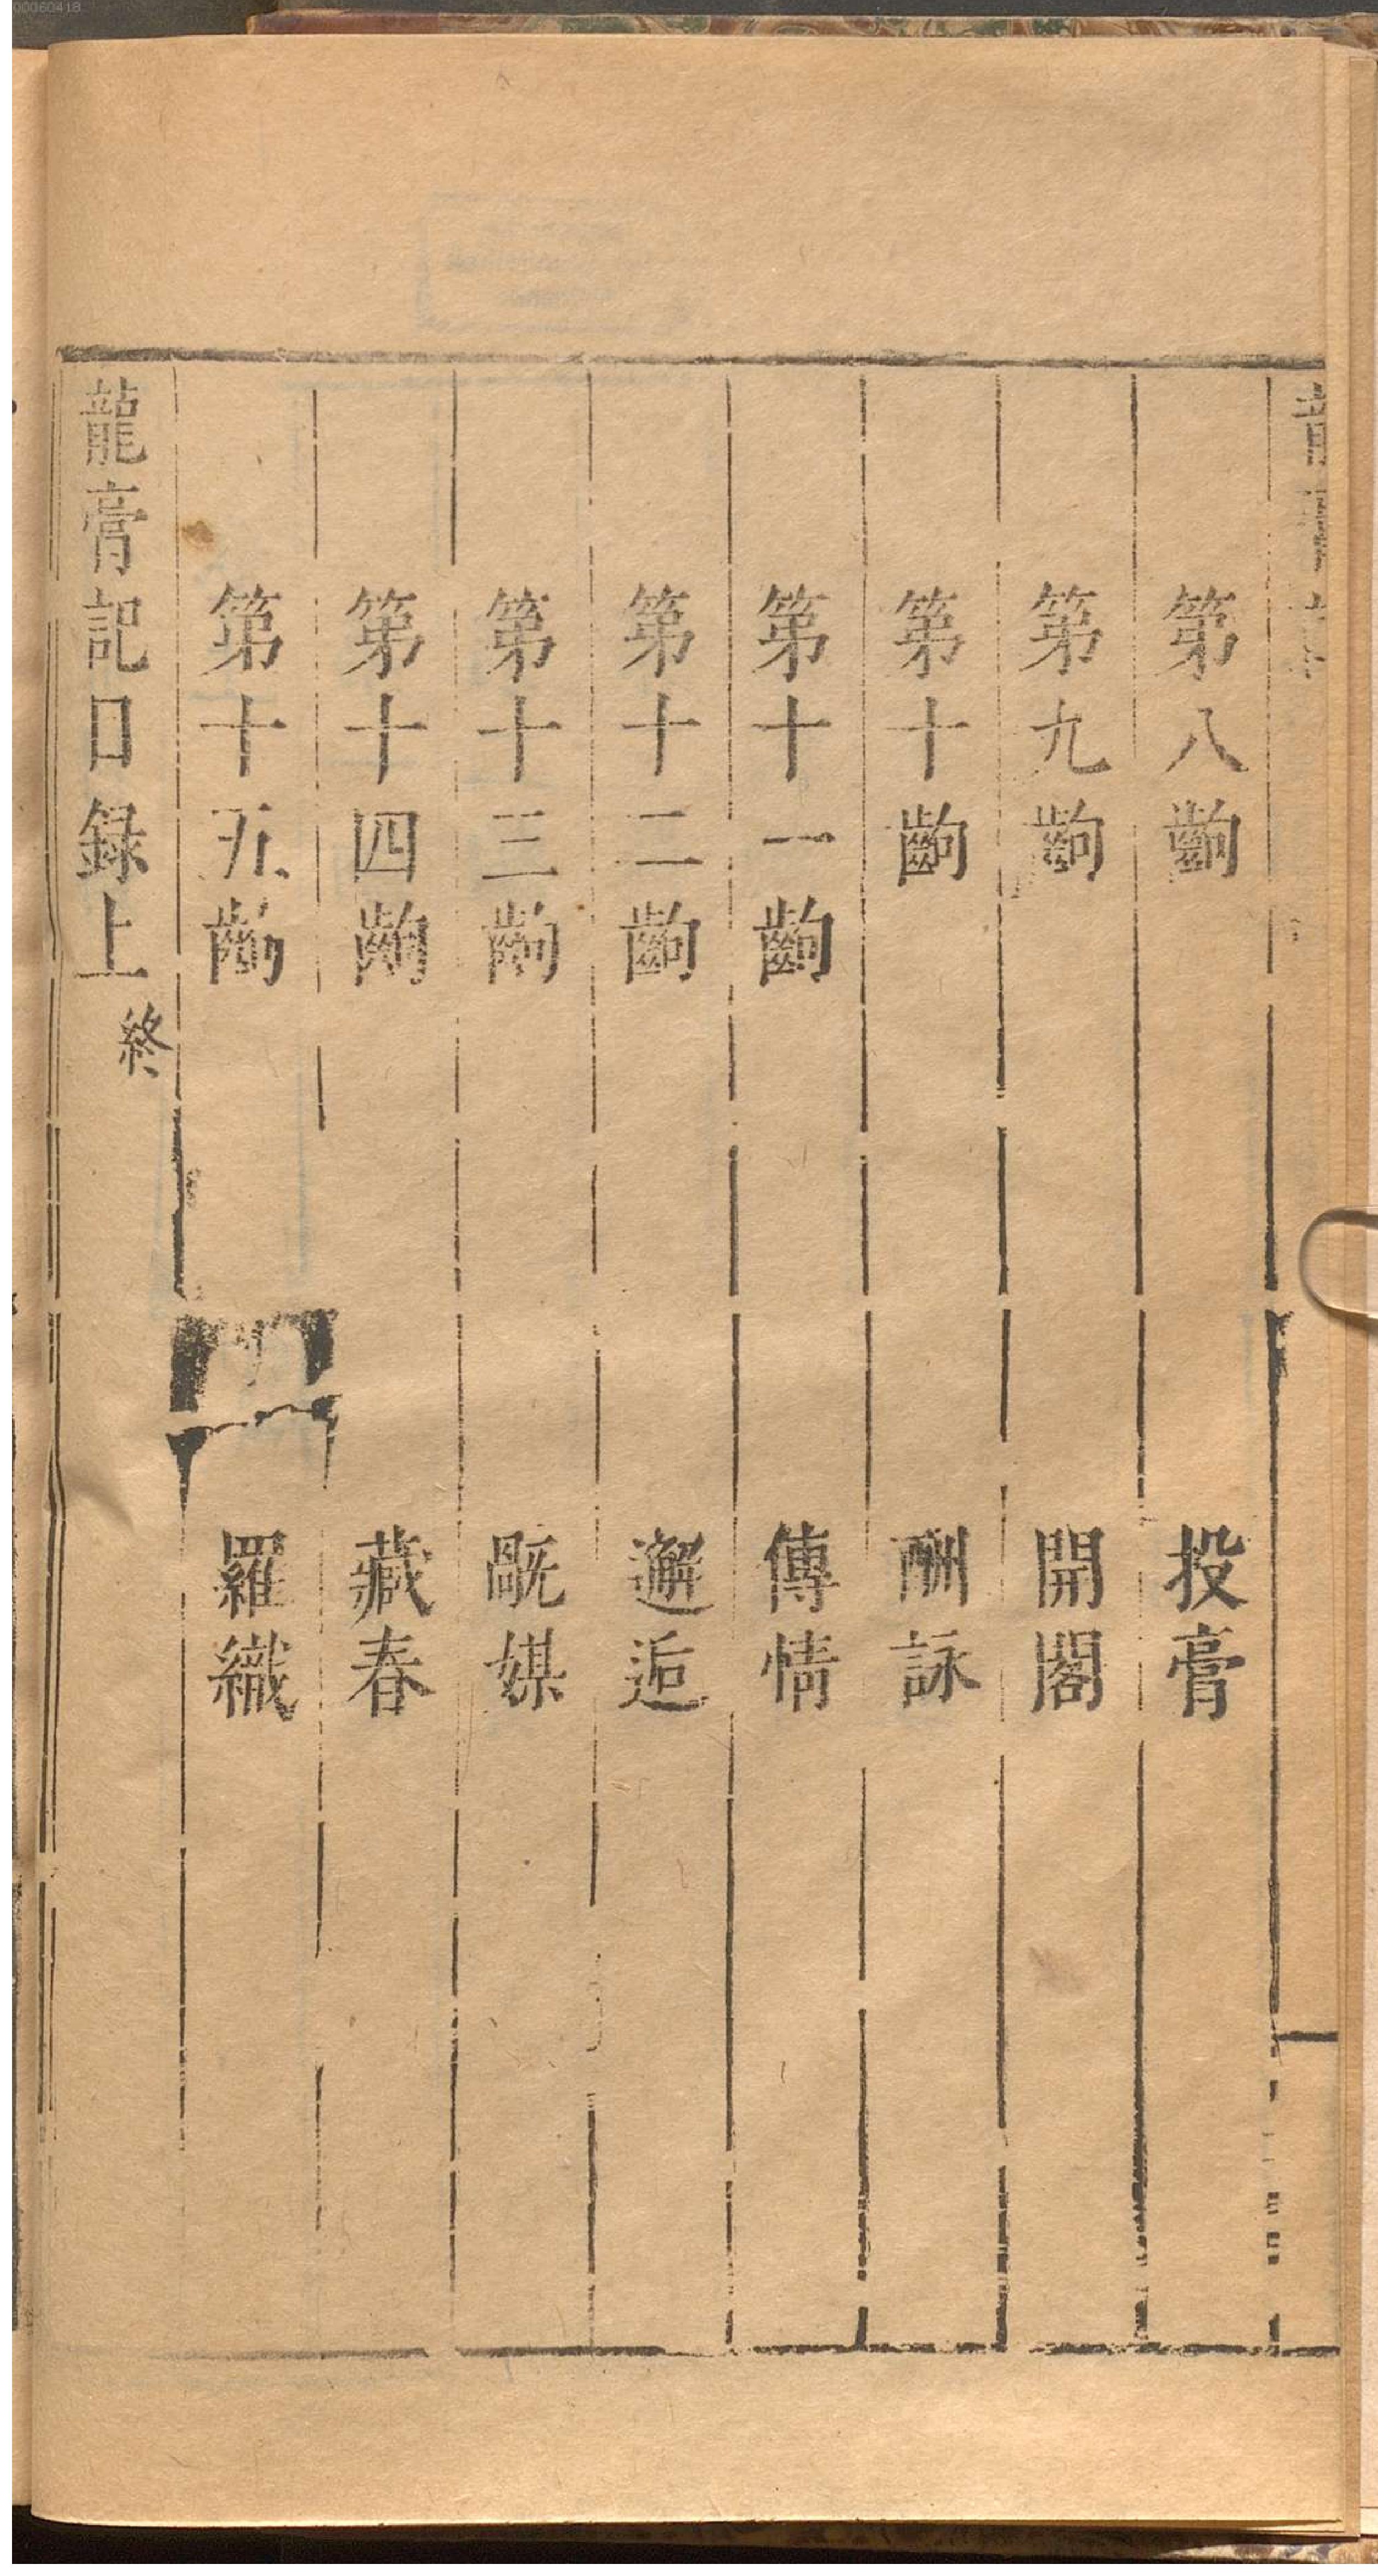 00060418
第八齣　投膏
第九齣　開閣
第十齣　酬詠
第十一齣　傳情
第十二齣　邂逅
第十三齣　媒
第十四齣　藏春
第十五齣　羅織
龍膏記目録上終